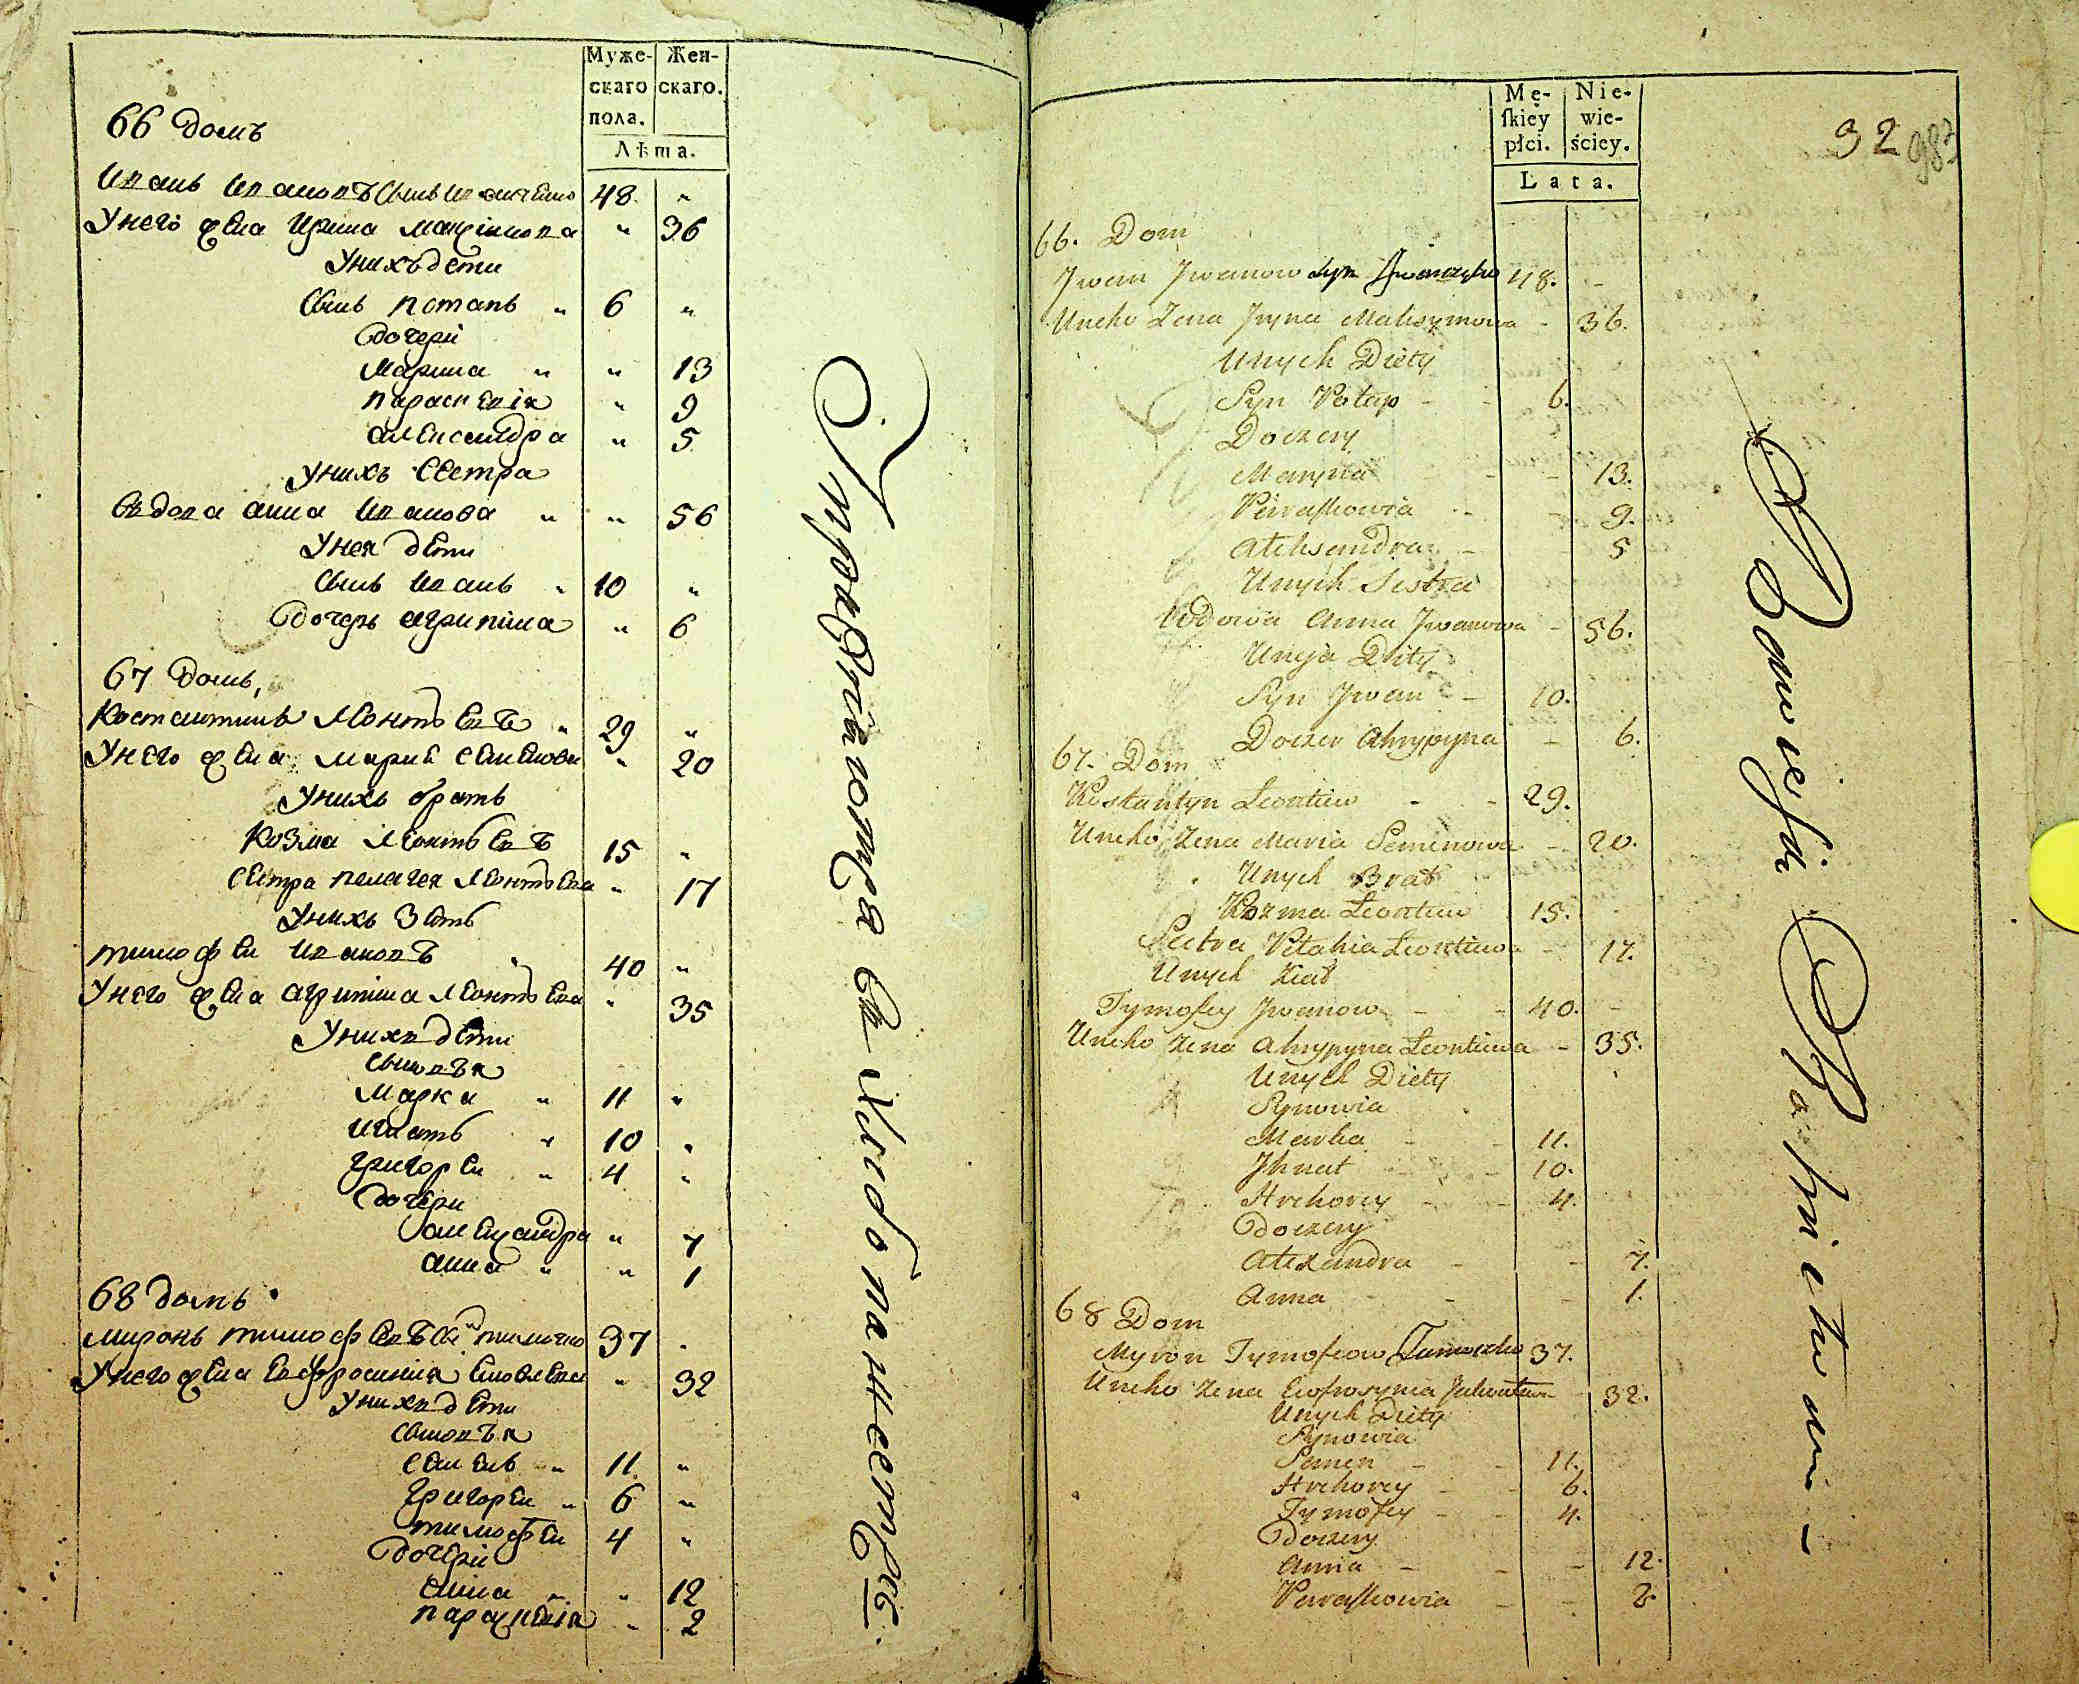 Муже- Жен-
скаго скаго.
пола.
Лѣта.
66 домъ
Иванъ Ивановъ Сынъ Иванченко 48. "
У него жена Ирина Максимова " 36
У нихъ дети
Сынъ Потапъ " 6 "
Дочери
Марина " " 13
Параскевія " 9
Александра " 5
У нихъ Сестра
Вдова Анна Иванова " " 56
У нея дети
Сынъ Иванъ " 10 "
Дочерь Агрипина " 6
67 домъ,
Костантинъ Леонтьевъ " 29 "
У него жена Мария Семенова " 20
У нихъ братъ
Козма Леонтьевъ 15 "
Сестра Пелагея Леонтьева " 17
У нихъ Зеть
Тимофеи Ивановъ " 40 "
У него жена Агрипина Леонтьева " 35
У нихъ дети
Сыновъя
Марки " 11 "
Игнатъ " 10 "
Григореи " 4 "
Дочери
Александра " 7
Анна " " 1
68 домъ
Миронъ Тимофеевъ Сынъ 37 "
У него жена Евфросинія " 32
У нихъ дети
Сыновъя
Семенъ " 11 "
Григореи " 6 "
Тимофеи 4 "
Дочери
Анна " " 12
Параскевія " 2
Mę- Nie-
ſkiey wie-
płci. ściey.
Lata.
32 983
66. Dom
Jwan Jwanow Syn Jwanczenko 48. -
Uneho Zena Jryna Maksymowa - 36.
Unych Diety
Syn Potap - - 6.
Doczery
Maryna - - 13.
Paraſkowia - - 9.
Aleksandra - - 5
Unych Sestra
Wdowa Anna Jwanowa - 56.
Uneja Diety
Syn Jwan - 10.
Doczer Ahrypyna - 6.
67. Dom
Kostantyn Leontiew - - 29.
Uneho Zena Maria Semenowa - 20.
Unych Brat
Kozma Leontiew 15. -
Sestra Pelahia Leontiewa - 17.
Unych Ziat
Tymofey Jwanow - - 40. -
Uneho Zena Ahrypyna Leontiewa - 35.
Unych Diety
Synowia
Marka - - 11.
Jhnat - - 10.
Hrehorey - - 4.
Doczery
Alexandra - - 7.
Anna - - 1.
68 Dom
Myron Tymofeow 37.
Uneho Zena Ewfrosynia - 32.
Unych Diety
Synowia
Semen - 11.
Hrehorey - - 6.
Tymofey - - 4.
Doczery
Anna - - - 12.
Paraſkowia - - 2.